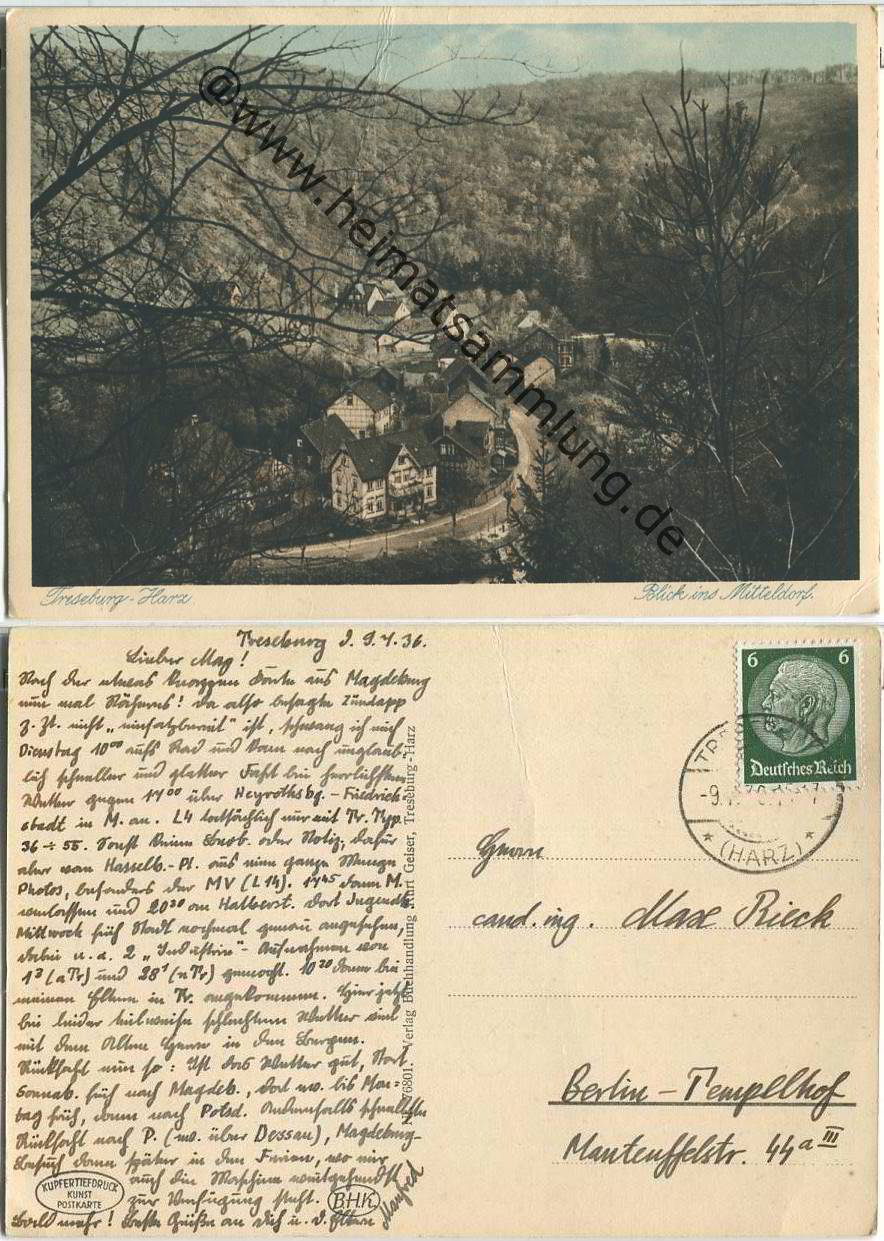 @www.heimatsammlung.de
Treseburg-Harz
Blick ins Mitteldorf.
Treseburg d. 9.4.36.
Lieber Max!
Nach der etwas Karte aus Magdeburg
nun mal Näheres! Da also besagte Zündapp
z. Zt. nicht „einsatzbereit" ist, schwang ich mich
Dienstag 10⁰⁰ aufs Rad und kam nach unglaub-
lich schneller und glatter Fahrt bei herrlichstem
Wetter gegen 17⁰⁰ über Heyrothsbg. - Friedrich-
stadt in M. an. L4 tatsächlich nur mit Tr. Typ.
36 ÷ 55. Sonst keine Beob. oder Notiz, dafür
aber von Hasselb.-Pl. aus eine ganze Menge
Photos, besonders der MV (L14). 17⁴⁵ dann M.
verlassen und 20³⁰ an Halberst. dort Jugendh.
Mittwoch früh Stadt nochmal genau angesehen,
dabei u. a. 2 „Industrie"-Aufnahmen von
1³ (aTr) und 28¹ (nTr) gemacht. 10³⁰ dann bei
meinen Eltern in Tr. angekommen. Hier jetzt
bei leider teilweise schlechtem Wetter viel
mit dem Alten Herrn in den Bergen.
Rückfahrt nun so: Ist das Wetter gut, Start
Sonnab. früh nach Magdeb., dort ev. bis Mon-
tag früh, dann nach Potsd. Andernfalls schnellste
Rückfahrt nach P. (ev. über Dessau), Magdeburg-
Besuch dann später in den Ferien, wo mir
auch die Maschine
zur Verfügung steht.
Bald mehr! Beste Grüße an Dich u. d. Eltern
Manfred
KUPFERTIEFDRUCK
KUNST
POSTKARTE
BHK
6801. Verlag Buchhandlung Kurt Geiser, Treseburg-Harz
6 6
Deutsches Reich
(HARZ)
Herrn
cand. ing. Max Rieck
Berlin - Tempelhof
Manteuffelstr. 44a III